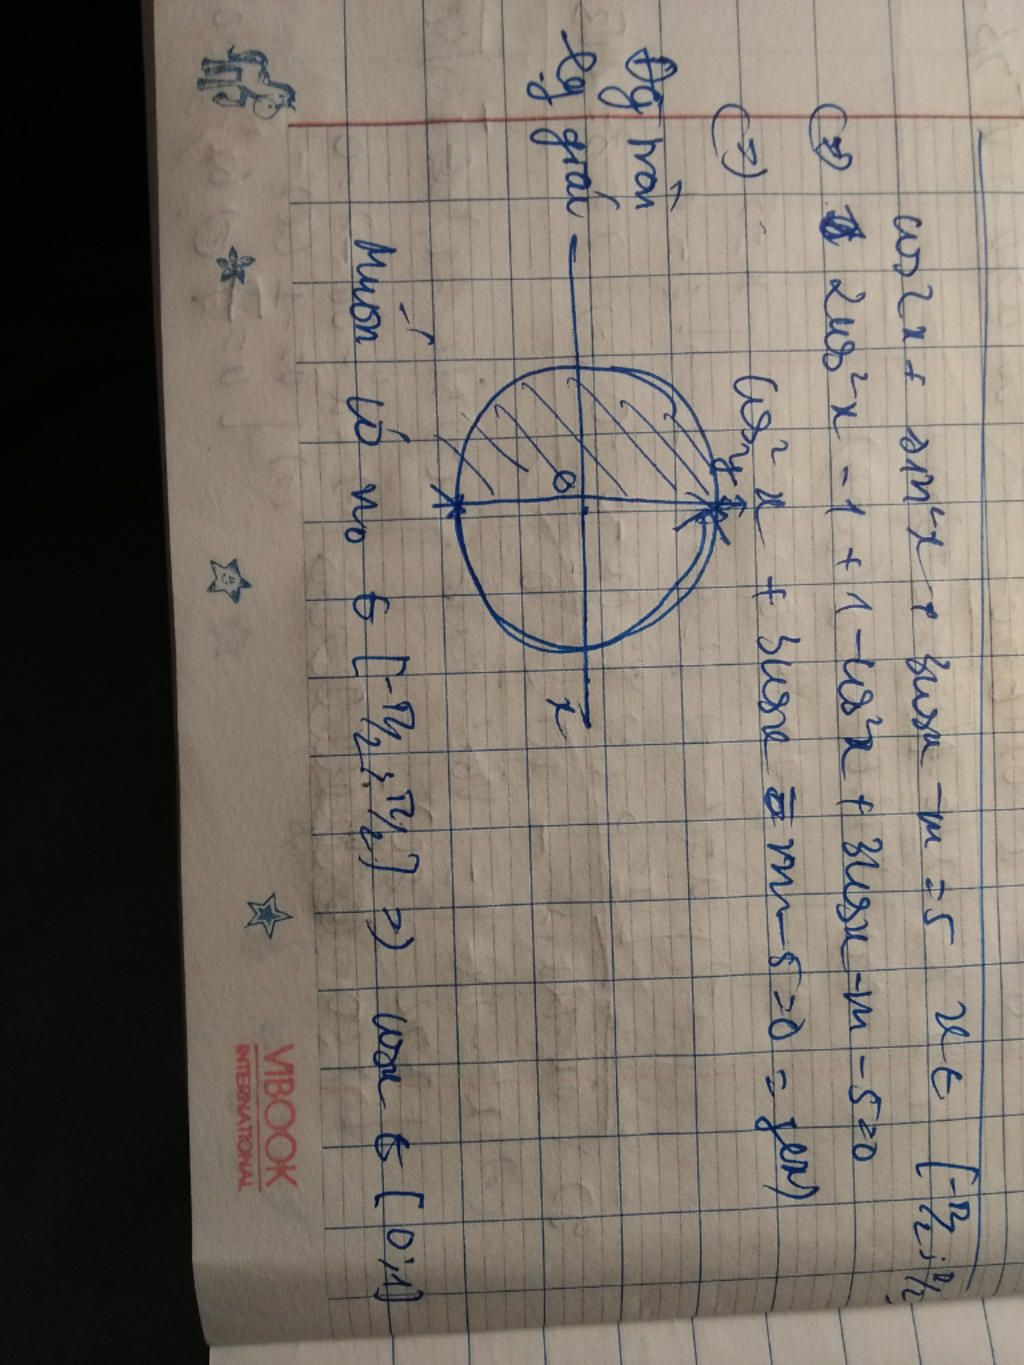 cos2x + sin²x + 3cosx - m = 5 x ∈ [-π/2; π/2]
(=) 2cos²x - 1 + 1 - cos²x + 3cosx - m - 5 = 0
(=) cos²x + 3cosx - m - 5 = 0 = f(x)
Đg tròn
lg giác
y
O
x
Muốn có no ∈ [-π/2; π/2] => cosx ∈ [0;1]
VIBOOK
INTERNATIONAL